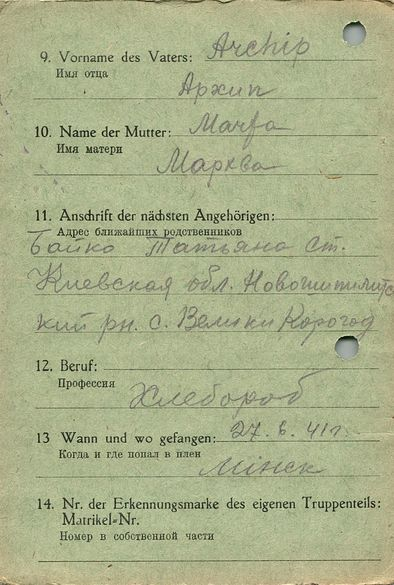 9. Vorname des Vaters: Archip
Имя отца
Архип
10. Name der Mutter: Marfa
Имя матери
Марква
11. Anschrift der nächsten Angehörigen:
Адрес ближайших родственников
Байко Татьяна ст.
Киевская обл. Новошипилитс
кий рн. с. Велики Корогод
12. Beruf:
Профессия
Хлебороб
13 Wann und wo gefangen: 27. 6. 41 г.
Когда и где попал в плен
Мінск
14. Nr. der Erkennungsmarke des eigenen Truppenteils:
Matrikel-Nr.
Номер в собственной части